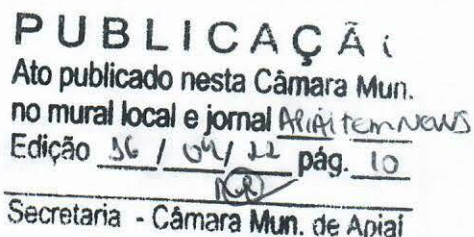 PUBLICAÇÃ
Ato publicado nesta Câmara Mun.
no mural local e jornal APIAÍ tem NEWS
Edição 36 / 04 / 22 pág. 10
Secretaria - Câmara Mun. de Apiaí